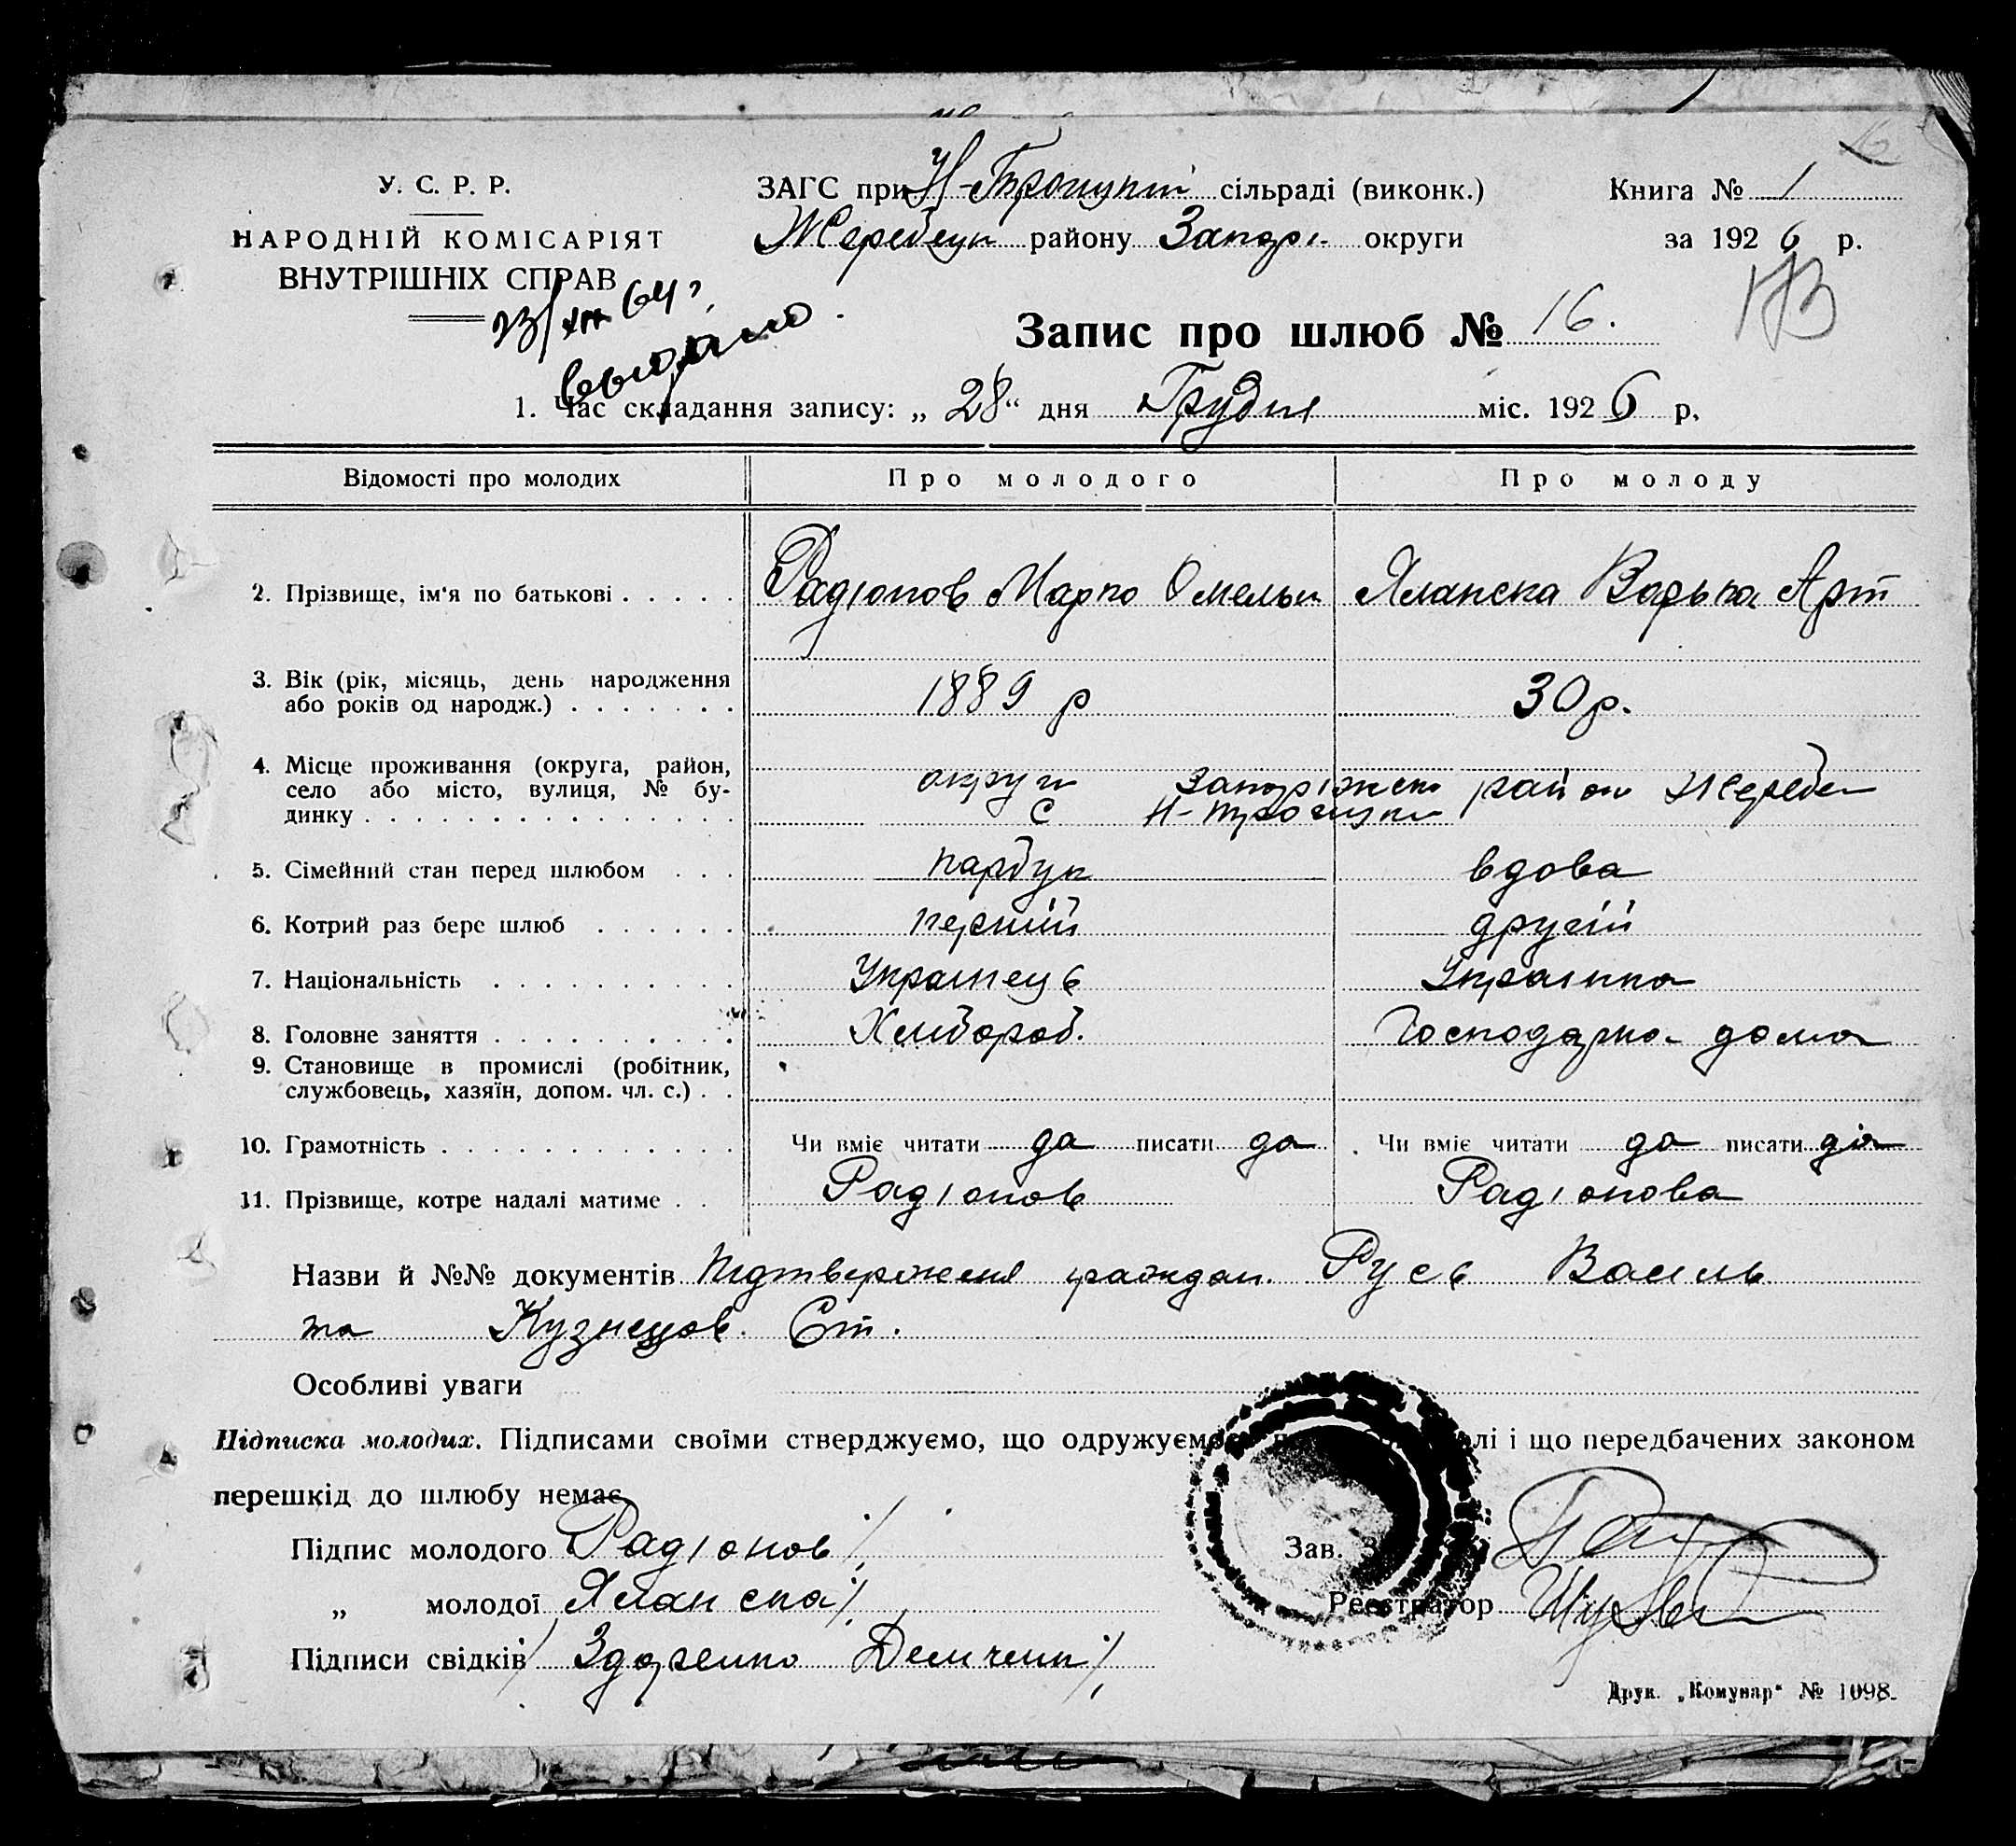 У. С. Р. Р.
НАРОДНІЙ КОМІСАРІЯТ
ВНУТРІШНІХ СПРАВ
ЗАГС при Н-Троицкій сільраді (виконк.)
Жеребецк району Запорі. округи
Книга № 1
за 1926 р.
23/XII 64 г.
выдано
Запис про шлюб № 16.
1. Час складання запису: „ 28 “ дня Грудня міс. 1926 р.
Відомості про молодих
Про молодого
Про молоду
2. Прізвище, ім'я по батькові . . . . .
Радіонов Марко Омельк
Яланска Варька Арт
3. Вік (рік, місяць, день народження
або років од народж.) . . . . . . .
1889 р
30 р.
4. Місце проживання (округа, район,
село або місто, вулиця, № бу-
динку . . . . . . . . . . . . . . .
округи Запоріжск район Жеребе
с Н-Троицки
5. Сімейний стан перед шлюбом . . .
парубук
вдова
6. Котрий раз бере шлюб . . . . . .
перший
другій
7. Національність . . . . . . . . . .
Украінець
Украінка
8. Головне заняття . . . . . . . . . .
Хлибороб.
Господарка дома
9. Становище в промислі (робітник,
службовець, хазяїн, допом. чл. с.) . .
10. Грамотність . . . . . . . . . . . .
Чи вміє читати да писати да
Чи вміє читати да писати да
11. Прізвище, котре надалі матиме . .
Радіонов
Радіонова
Назви й №№ документів Підтверження граждан. Русь Василь
та Кузнецов. Ст.
Особливі уваги
Підписка молодих. Підписами своїми стверджуємо, що одружуємо лі і що передбачених законом
перешкід до шлюбу немає.
Підпис молодого Радіонов
„ молодої Яланска
Підписи свідків Здоренко Демченк
Зав. З
Реєстратор
Друк. „Комунар“ № 1098.